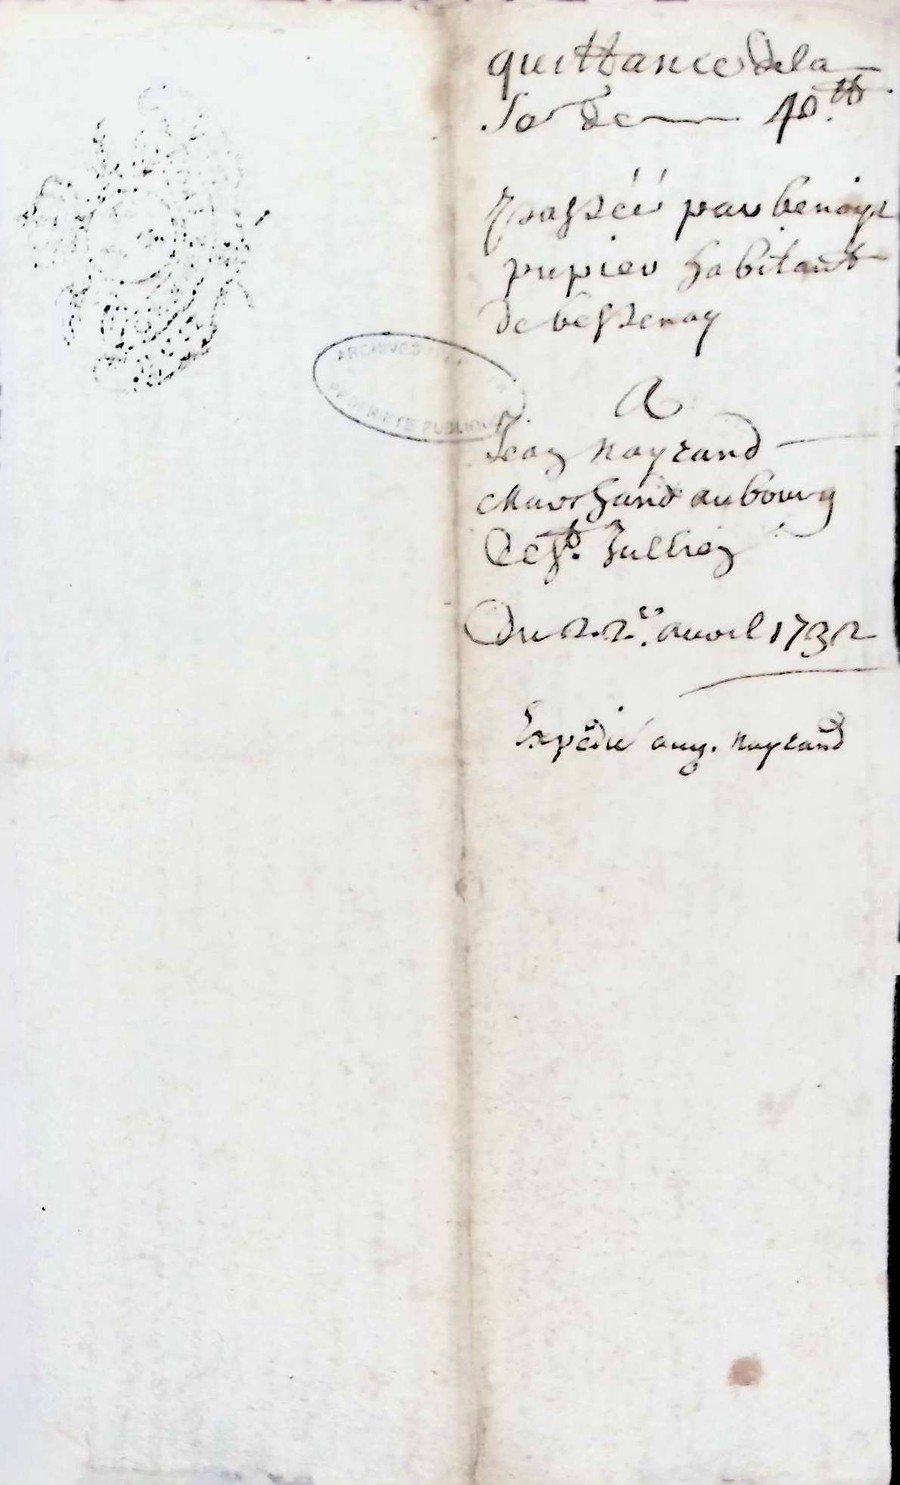 quittance de la
So.e de 40.tt
passéé par benoyt
pupier habitant
de bessenay
A
Jean nayrand
Marchand au bourg
de St. Jullien
Du 22.e auvril 1732
Expédié aud. nayrand
ARCHIVES
PROPRIETE PUBLIQUE